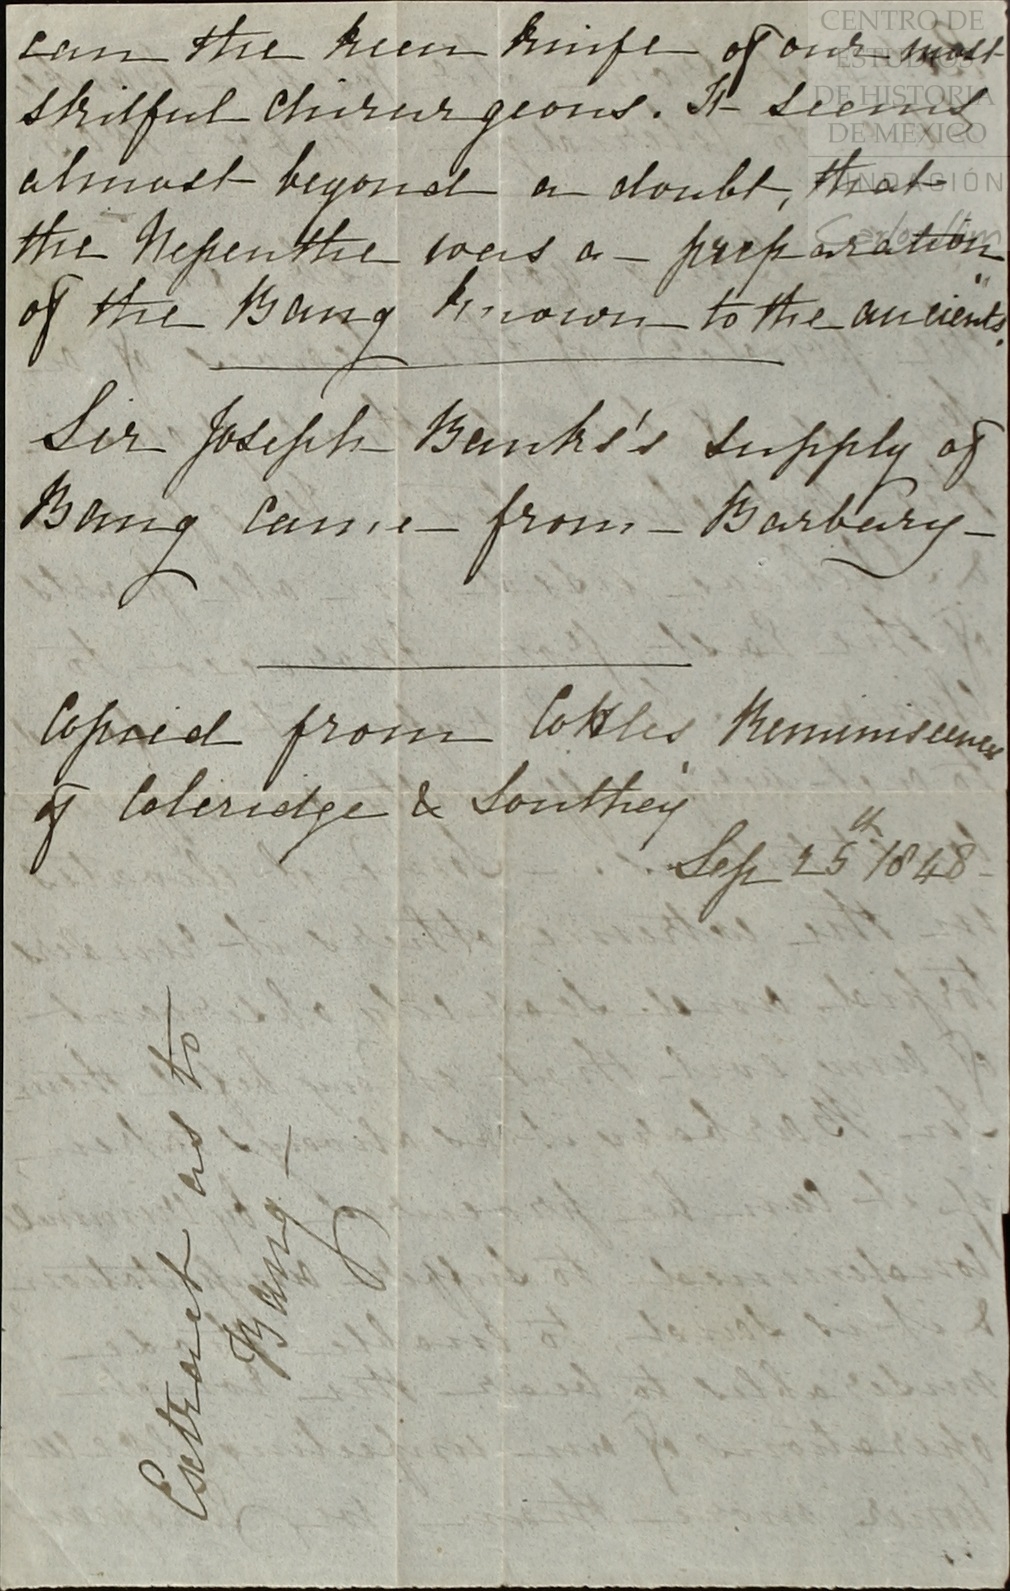 can the keen knife of our most
skilful chirurgeons. It seems
almost beyond a doubt, that
the Nepenthe was a preparation
of the Bang known to the ancients."
Sir Joseph Banks's supply of
Bang came from Barbary
Copied from Cottles Reminiscences
of Coleridge & Southey
Sep 25th 1848
Extract as to
Bang
CENTRO DE
ESTUDIOS
DE HISTORIA
DE MEXICO
FUNDACIÓN
Carlos Slim